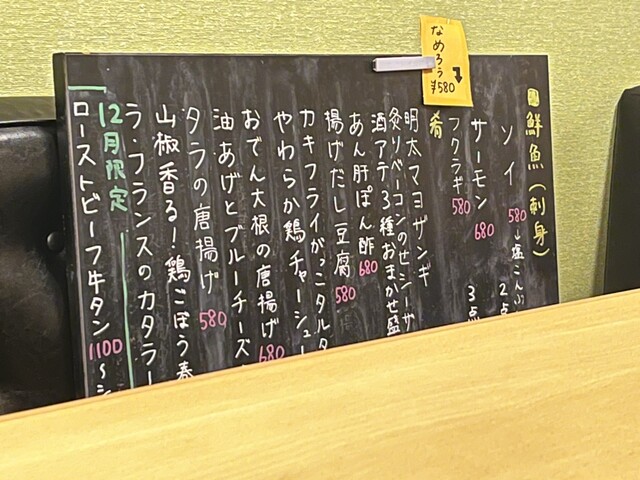 なめろう
¥580
鮮魚(刺身)
ソイ 580 塩こんぶ
サーモン 680 2点
フクラギ 580 3点
肴
明太マヨザンギ
炙りベーコンのせシーザ
酒アテ3種おまかせ盛
あん肝ぽん酢 680
揚げだし豆腐 580
カキフライがっこタルタ
やわらか鶏チャーシュー
おでん大根の唐揚げ 680
油あげとブルーチーズ
タラの唐揚げ 580
山椒香る!鶏ごぼう春
ラ・フランスのカタラー
12月限定
ローストビーフ牛タン 1100 〜シ